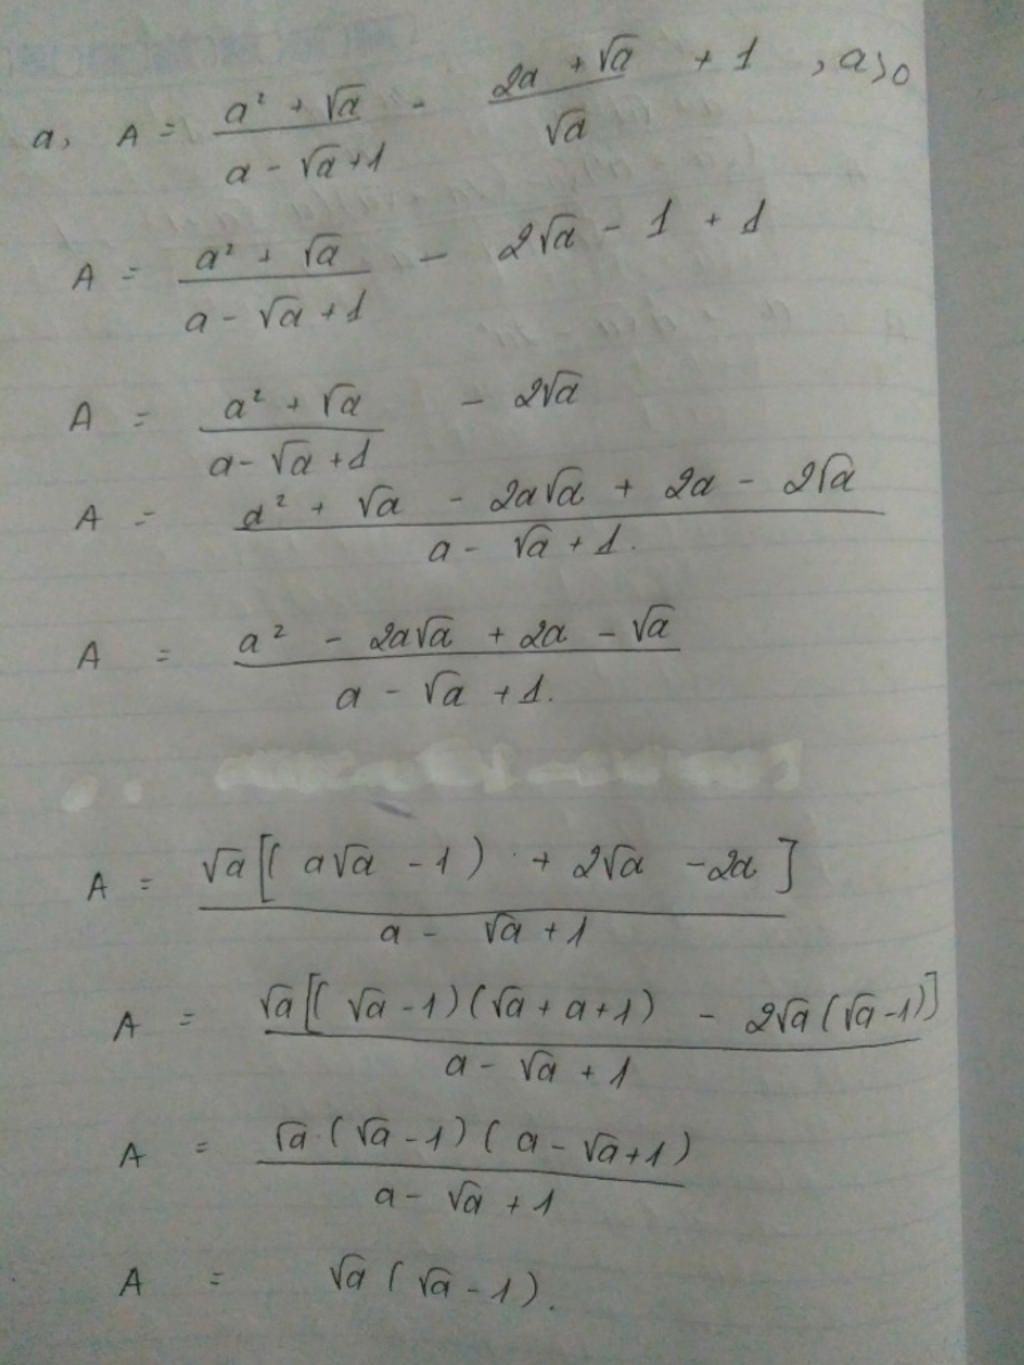 a, A = (a² + √a)/(a - √a + 1) - (2a + √a)/√a + 1 , a>0
A = (a² + √a)/(a - √a + 1) - 2√a - 1 + 1
A = (a² + √a)/(a - √a + 1) - 2√a
A = (a² + √a - 2a√a + 2a - 2√a)/(a - √a + 1).
A = (a² - 2a√a + 2a - √a)/(a - √a + 1).
A = √a[(a√a - 1) + 2√a - 2a]/(a - √a + 1)
A = √a[(√a - 1)(√a + a + 1) - 2√a(√a - 1)]/(a - √a + 1)
A = √a.(√a - 1)(a - √a + 1)/(a - √a + 1)
A = √a(√a - 1).